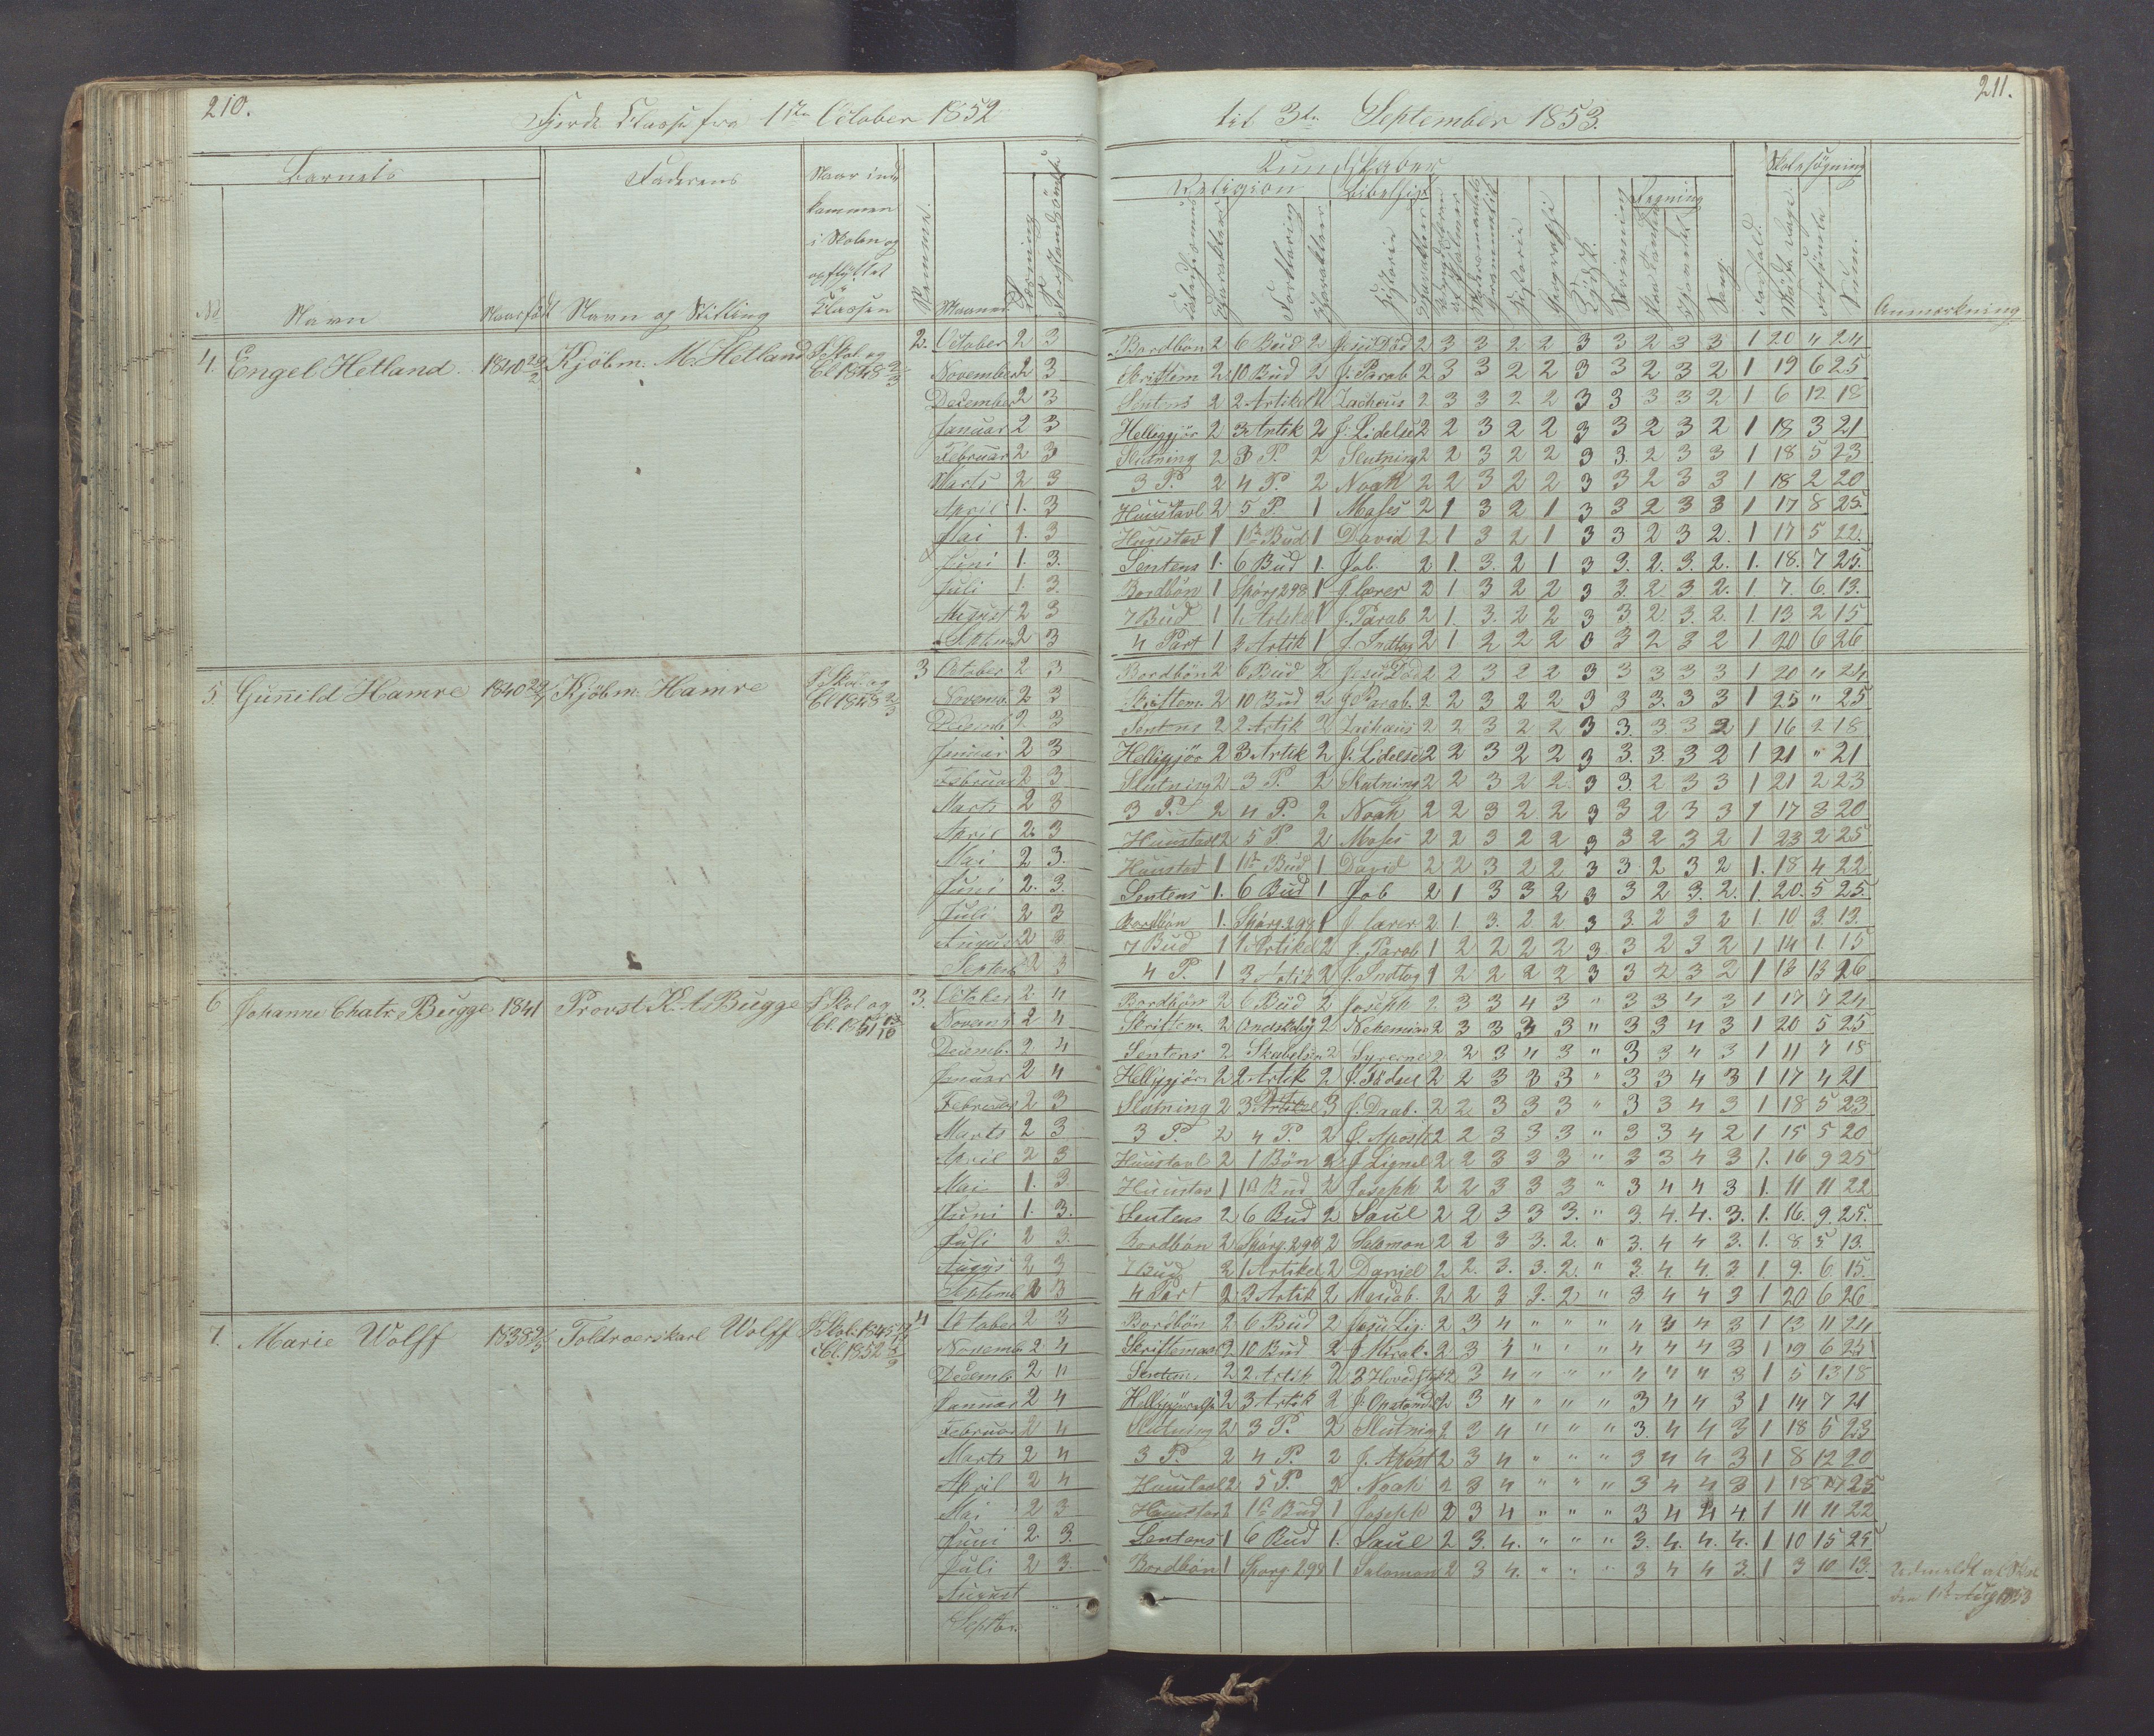 210.
Fjerde Classe fra 1ste October 1852
Barnets
Faderens
Naar ind
kommen
i Skolen og
opflyttet
i
Classen
No
Navn
Naar født
Navn og Stilling
Nummer.
Maaned.
Læsning
Forstandsøvelse
4. Engel Hetland. 1840 Kjøbm. M. Hetland I Skol. og
Cl 1848 2/3
2. October 2 3
November 2 3
December 2 3
Januar 2 3
Februar 2 3
Marts 2 3
April 1. 3
Mai 1. 3
Juni 1. 3.
Juli 1. 3.
August 2 3
2 3
5. Gunild Hamre 1840 Kjøbm. Hamre I Skol. og
3 October 2 3
Novemb. 2 3
Decemb 2 3
Januar 2 3
Februar 2 3
Marts 2 3
April 2. 3
Mai 2 3.
Juni 2. 3.
Juli 2 3
August 2 3
Septemb 2 3
6 Johanne Bugge 1841 Provst Bugge I Skol og
3. October 2 4
Novemb 2 4
Decemb. 2 4
Januar 2 4
Februar 2 3
Marts 2 3
April 2 3
Mai 1. 3.
Juni 1. 3.
Juli 2 3.
2 3
2 3
7. Marie Wolff Toldroerskarl Wolff
4 October 2 3
Novemb 2 4
Decemb 2
Januar 2 4
Februar 2 4
Marts 2 4
April 2 4
Mai 2 3
Juni 2 3.
Juli 2 3.
August
Septbr.
211.
til 3te September 1853.
Kundskaber
Religion
Bibelhist
Regning
Skolesøgning
Forklaring
Historie
Historie
Geographie
Skrivning
Sang.
Anmærkning
Bordbön 2 6 Bud 2 Jesu Död 2 3 3 2 2 3 3 2 3 3 1 20 " 24
Skriftem 2 10 Bud 2 J. Parab 2 3 3 2 2 3 3 2 3 2 1 19 6 25
Sentens 2 2 Artikel Zachæus 2 3 3 2 2 3 3 3 3 2 1 6 12 18
Helligjör 2 3 Artik 2 J. Lidelse 2 2 3 2 2 3 3 2 3 2 1 18 3 21
Slutning 2 3 P. 2 Slutning 2 2 3 2 2 3 3. 2 3 3 1 18 5 23
3 P. 2 4 P. 2 Noah 2 2 3 2 2 3 3 2 3 3 1 18 2 20
Huustavl 2 5 P. 1 Moses 2 1 3 2 1 3 3 2 3 3 1 17 8 25
Huustav 1 1ste Bud 1 David 2 1 3 2 1 3 3 2 3 2. 1 17 5 22.
Sentens 1. 6 Bud 1. Job. 2 1. 3. 2 1 3 3. 2. 3. 2. 1. 18. 7 25.
Bordbön 1 Spörg 298 1 J. lærer 2 1 3 2 2 3 3. 2 3 2. 1. 7. 6. 13.
7 Bud 1 1 Artikel 1 J. Parab 2 1. 3. 2 2 3 3 2. 3. 2. 1. 13 2 15
4 Part 1 3 Artik 1 J. Indtog 2 1 2 2 2 3 2 3 2 1 20 6 26
Bordbön 2 6 Bud 2 Jesu Död 2 2 3 2 2 3 3 3 3 3 1 20 " 24
Skriftem. 2 10 Bud 2 J. Parab. 2 2 3 2 2 3 3 3. 3 3 1 25 " 25
Sentens 2 2 Artik 2 Zachæus 2 2 3 2 2 3 3. 3 3 2 1 16 2 18
Helligjör 2 3 Artik 2 J. Lidelse 2 2 3 2 2 3 3. 3. 3 2 1 21 " 21
Slutning 2 3 P. 2 Slutning 2 2 3 2 2. 3 3. 2 3 3 1 21 2 23
3 P. 2 4 P. 2 Noah 2 2 3 2 2 3 3 2 3 3 1 17 3 20
Huustavl 2 5 P 2 Moses 2 2 3 2 2 3 3 2 3 2 1 23 2 25
Huustad 1 1ste Bud 1 David 2 2 3 2 2 3 3. 2 3 2 1. 18 4 22
Sentens 1. 6 Bud 1 Job 2 1 3 3 2 3 3 2 3. 2. 1. 20. 5 25.
Bordbön 1. Spörg. 298 1 J. lærer 2 1. 3. 2 2 3 3. 2 3 2 1. 10 3. 13.
7 Bud 1 1 Artikel 2 J. Parab 1 2 2 2 2 3 3 2 3 2 1 14 1. 15
4 P. 1 3 Artik 2 J. Indtog 1 2 2 2 2 3 3 2 3 2 1 13 13 26
Bordbön 2 6 Bud 2 Joseph 2 3 3 4 3 " 3 3 4 3 1 17 7 24
Skriftem. 2 2 Nehemias 2 3 3 3 3 " 3 3 4 3 1 20 5 25
Sentens 2 Skabelsen 2 Syrerne 2 2 3 4 3 " 3 3 4 3 1 11 7 18
Helligjör 2 2 Artik 2 J. Födsel 2 2 3 3 3 " 3 3 4 3 1 17 4 21
Slutning 2 3 3 J. Daab. 2 2 3 3 3 " 3 3 4 3 1 18 5 23
3 P. 2 4 P. 2 J. Apost 2 2 3 3 3 " 3 3 4 2 1 15 5 20
Huustavl 2 1 Bön 2 J. Lignel 2 2 3 3 3 " 3 3 4 3 1. 16 9 25
Huustav 1 1ste Bud 2 Joseph 2 2 3 3 3 " 3 4 4 3 1. 11 11 22
Sentens 2 6 Bud 2 Saul 2 2 3 3 3. " 3. 4. 4. 3. 1. 16. 9. 25.
Bordbön 2 Spörg. 298 2 Salomon 2 2 3 3. 2. " 3. 4 4 3. 1. 8. 5. 13.
7 Bud 2 1 Artikel 2 Daniel 2 2. 3. 3. 2. " 3. 4. 4. 3. 1. 9. 6 15.
4 Part 2 3 Artik 2 2 2 3 3. 2 " 3 4 4 3 1 20 6 26
Bordbön 2 6 Bud 2 Jesu Lig. 2 3 4 " " " 4 4 4 3 1 13 11 24
Skriftemaal 2 10 Bud 2 J. Mirak. 2 3 4 " " " 4 4 4 3 1 19 6 25
Sentens 2 2 Artik 2 3 4 " " " 4 4 4 3 1 5 13 18
2 3 Artik 2 J. Opstand 2 3 4 " " " 3 4 4 3 1 14 7 21
Slutning 2 3 P. 2 Slutning 2 3 4 " " " 3. 4 4 3 1 18 5 23
3 P. 2 4 P. 2 J. Apost 2 3 4 " " " 3 4 4 3 1 8 12 20
Huustavl 2 5 P. 2 Noah 2 3 4 " " " 3 4 4 3 1 18 25
Huustav 1ste Bud 1 Joseph 2 3 4 " " " 3 4 4 4 1 11 11 22
Sentens 1 6 Bud 1. Saul 2 3. 4. " " " 3. 4. 4. 4. 1 10 15 25
Bordbön 1 Spörg. 298 1 Salomon 2 3 4. " " " 3 4 4 3. 1 3 10 13.
Udmeldt
den 1ste Aug 1853